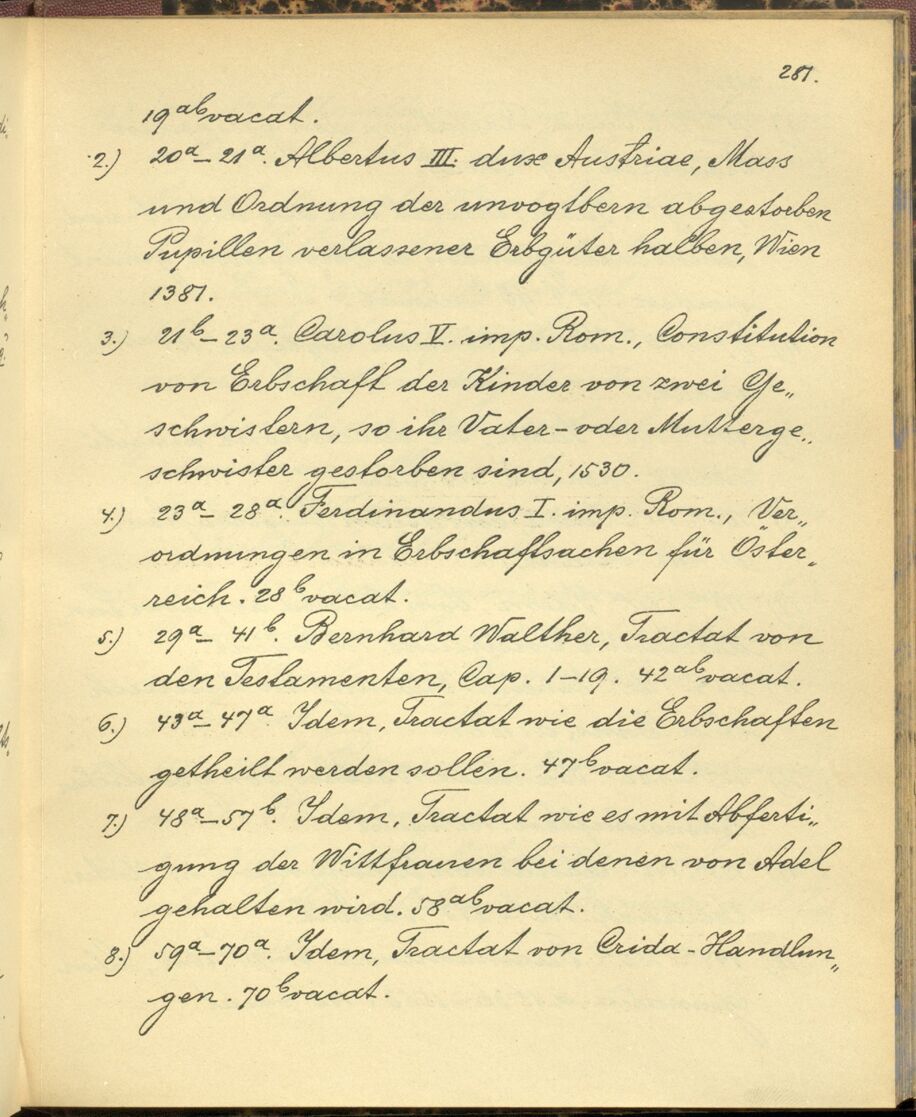 281.
19ᵃᵇ vacat.
2.) 20ᵃ–21ᵃ. Albertus III. dux Austriae, Mass
und Ordnung der unvogtbern abgestorben
Pupillen verlassener Erbgüter halben, Wien
1381.
3.) 21ᵇ–23ᵃ. Carolus V. imp. Rom., Constitution
von Erbschaft der Kinder von zwei Ge„
schwistern, so ihr Vater- oder Mutterge„
schwister gestorben sind, 1530.
4.) 23ᵃ–28ᵃ. Ferdinandus I. imp. Rom., Ver„
ordnungen in Erbschaftsachen für Öster„
reich. 28ᵇ vacat.
5.) 29ᵃ–41ᵇ. Bernhard Walther, Tractat von
den Testamenten, Cap. 1–19. 42ᵃᵇ vacat.
6.) 43ᵃ–47ᵃ. Idem, Tractat wie die Erbschaften
getheilt werden sollen. 47ᵇ vacat.
7.) 48ᵃ–57ᵇ. Idem, Tractat wie es mit Abferti„
gung der Wittfrauen bei denen von Adel
gehalten wird. 58ᵃᵇ vacat.
8.) 59ᵃ–70ᵃ. Idem, Tractat von Crida-Handlun„
gen. 70ᵇ vacat.